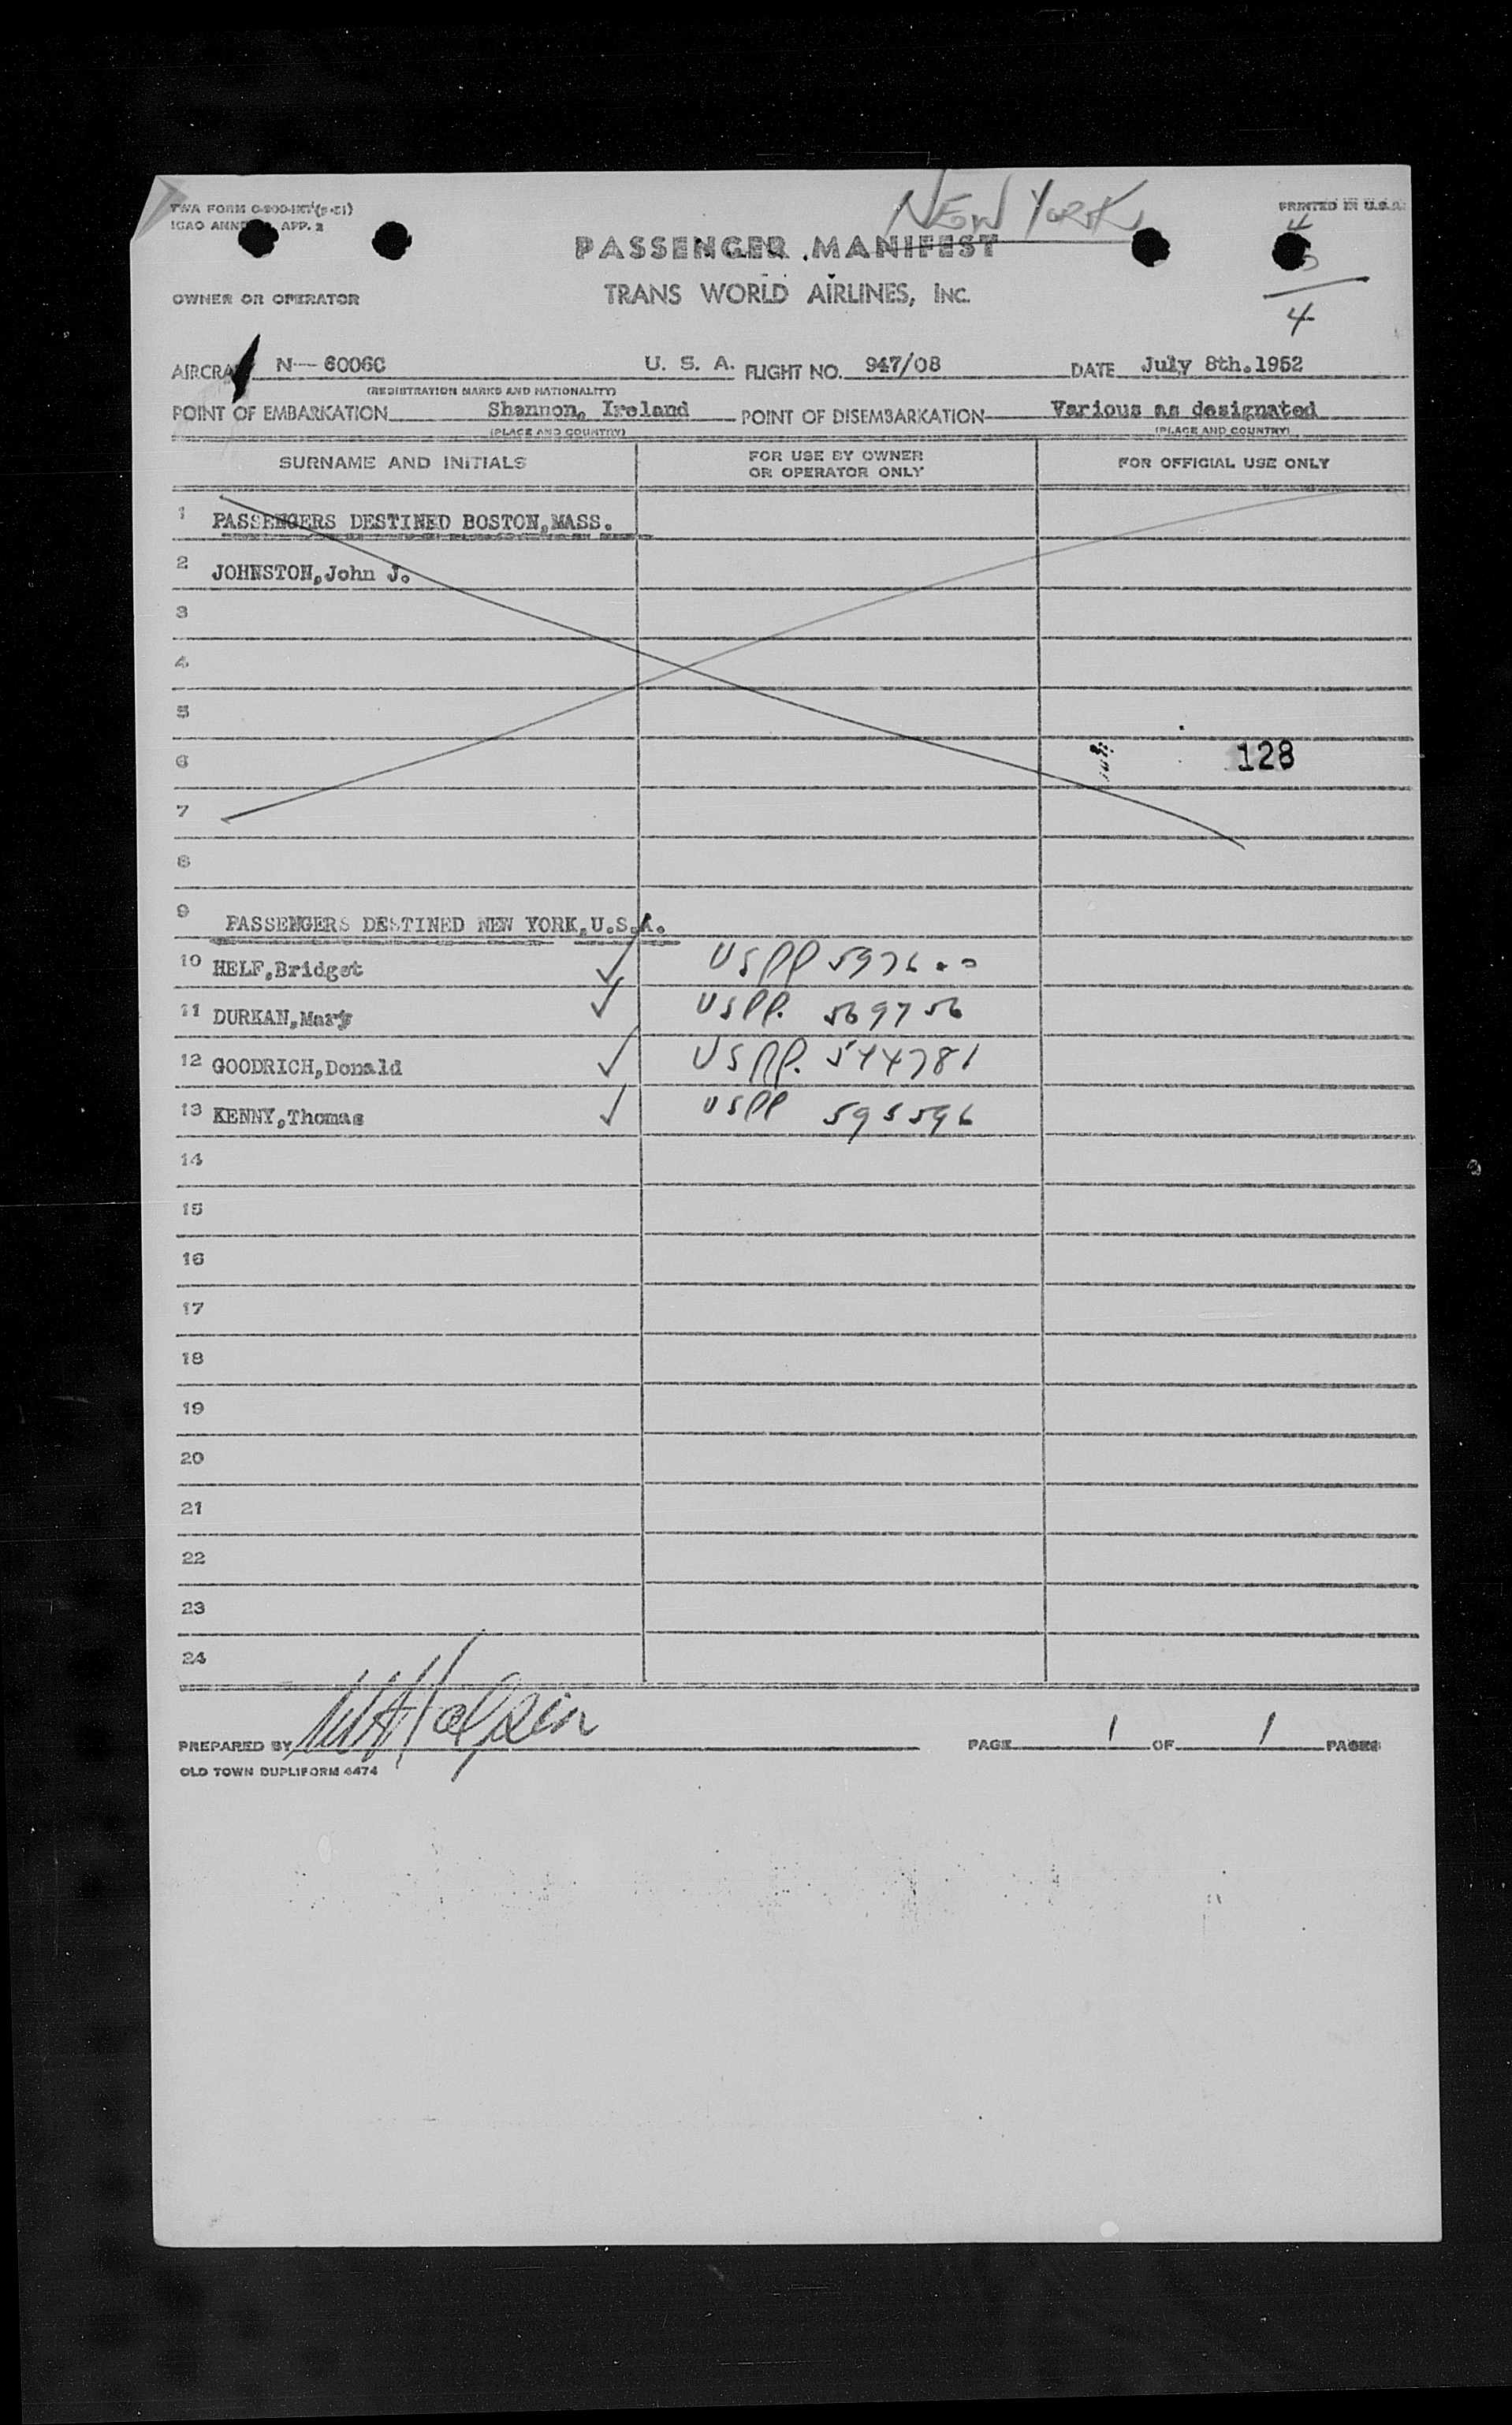 TWA FORM
PRINTED IN U.S.A.
NEW YORK
APP. 2
PASSENGER MANIFEST
OWNER OR OPERATOR
TRANS WORLD AIRLINES, INC.
4
AIRCRAFT N-- 6006C U. S. A. FLIGHT NO. 947/08 DATE July 8th.1952
(REGISTRATION MARKS AND NATIONALITY)
POINT OF EMBARKATION Shannon, Ireland POINT OF DISEMBARKATION Various as designated
(PLACE AND COUNTRY) (PLACE AND COUNTRY)
SURNAME AND INITIALS FOR USE BY OWNER OR OPERATOR ONLY FOR OFFICIAL USE ONLY
1 PASSENGERS DESTINED BOSTON,MASS.
2 JOHNSTON,John J.
3
4
5
6 128
7
8
9 PASSENGERS DESTINED NEW YORK,U.S.A.
10 HELF,Bridget ✓ USPP 597600
11 DURKAN,Mary ✓ USPP. 569756
12 GOODRICH,Donald ✓ USPP. 544781
13 KENNY,Thomas ✓ USPP 595596
14
15
16
17
18
19
20
21
22
23
24
PREPARED BY PAGE 1 OF 1 PAGES
OLD TOWN DUPLIFORM 6474